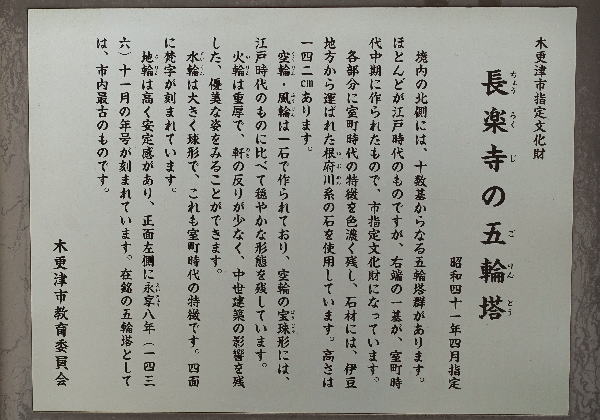 木更津市指定文化財
長楽寺の五輪塔
ちょうらくじ ごりんとう
昭和四十一年四月指定
境内の北側には、十数基からなる五輪塔群があります。
ほとんどが江戸時代のものですが、右端の一基が、室町時
代中期に作られたもので、市指定文化財になっています。
各部分に室町時代の特徴を色濃く残し、石材には、伊豆
地方から運ばれた根府川系の石を使用しています。高さは
一四二㎝あります。
空輪・風輪は一石で作られており、空輪の宝珠形には、
江戸時代のものに比べて穏やかな形態を残しています。
火輪は重厚で、軒の反りが少なく、中世建築の影響を残
した、優美な姿をみることができます。
水輪は大きく球形で、これも室町時代の特徴です。四面
に梵字が刻まれています。
地輪は高く安定感があり、正面左側に永享八年（一四三
六）十一月の年号が刻まれています。在銘の五輪塔として
は、市内最古のものです。
木更津市教育委員会